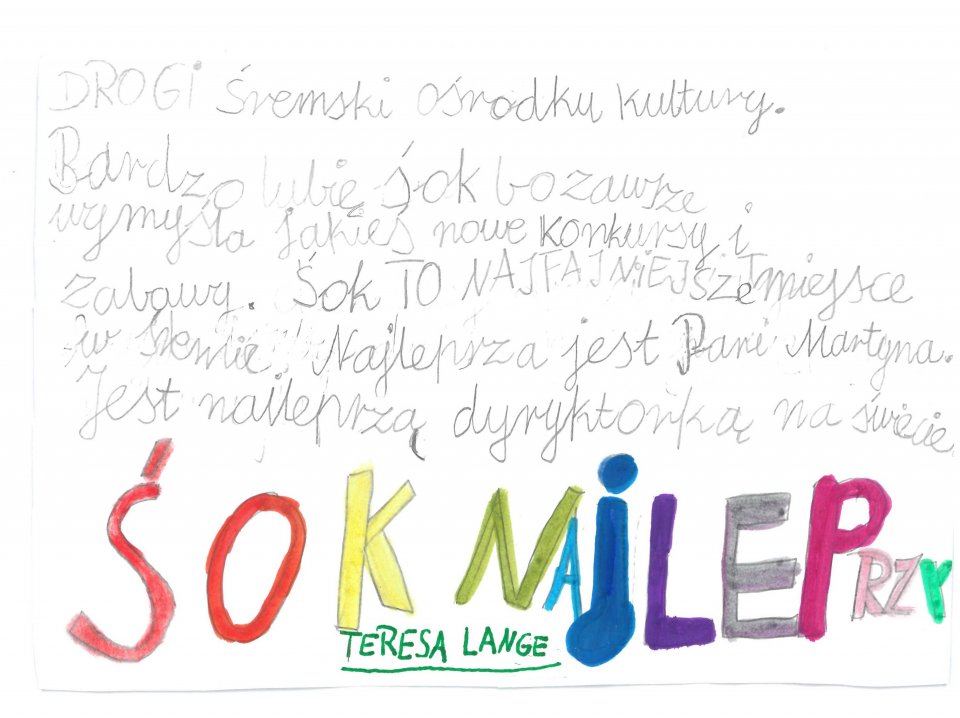 DROGI Śremski Ośrodku Kultury.
Bardzo lubię Śok bo zawsze
wymyśla jakieś nowe konkursy i
zabawy. Śok TO NAJFAJNIEJSZE miejsce
w Śremie. Najleprza jest Pani Martyna.
Jest najleprzą dyryktorką na świecie.
ŚOK NAJLEPRZY
TERESA LANGE